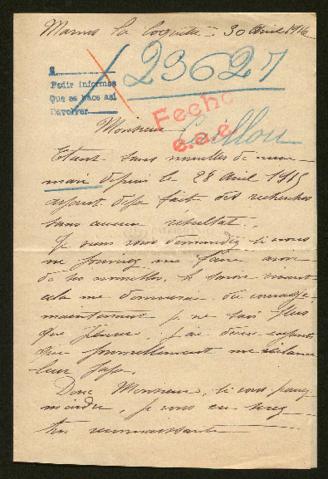 Marnes la Coquette 30 Avril 1916
A
Pedir informes
Que se hace asi
Devolver
23627
Fecho
e.e.e.
Monsieur
Caillon
Etant sans nouvelles de mon
mari depuis le 28 avril 1915
ayant déjà fait des recherches
sans aucun résultat.
Je viens vous demander si vous
ne pourriez me faire avoir
de ses nouvelles, le savoir vivant
cela me donnerai du courage
maintenant je ne fais plus
que pleurer, j'ai deux enfants
que journellement me réclame
leur papa.
Donc Monsieur, si vous pouvez
m'aider, je vous en serez
très reconnaissante